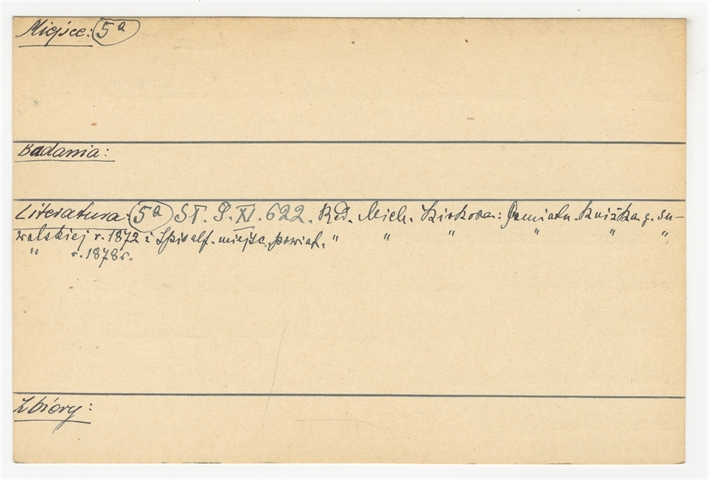 Miejsce: 5a
Badania:
Literatura: 5a Sł. G. XI. 622. Red. Mich. Kirkora: Pamiatn. Kniżka g. Su-
walskiej r. 1872 i Spis alf. miejsc. powiat. " " " " " "
" r. 1878r.
Zbiory: